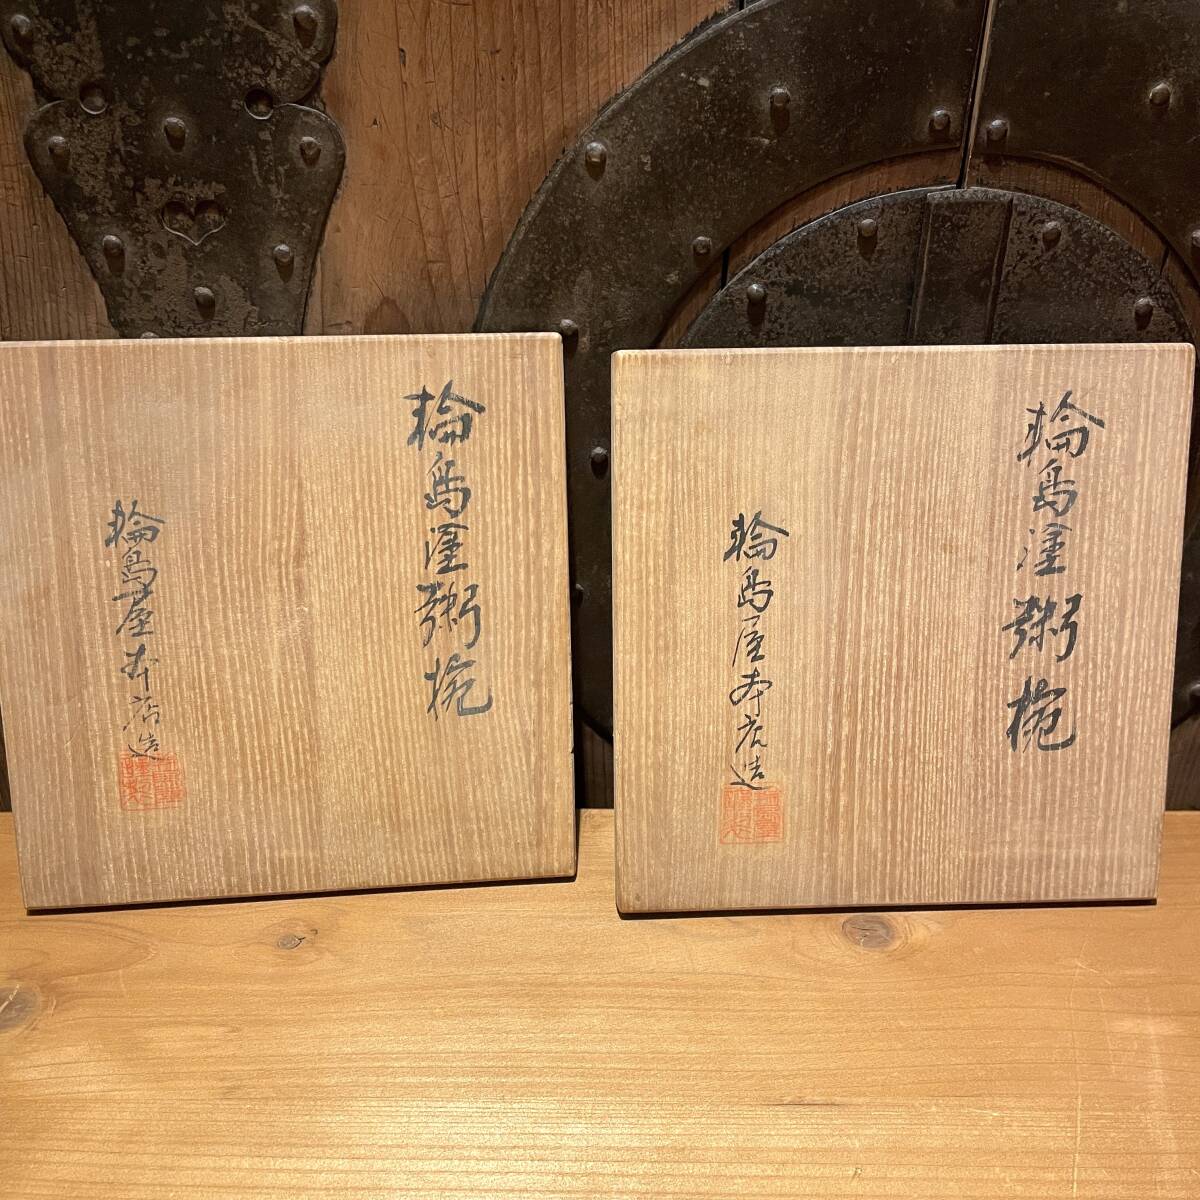 輪島塗粥椀
輪島屋本店造
輪島塗粥椀
輪島屋本店造